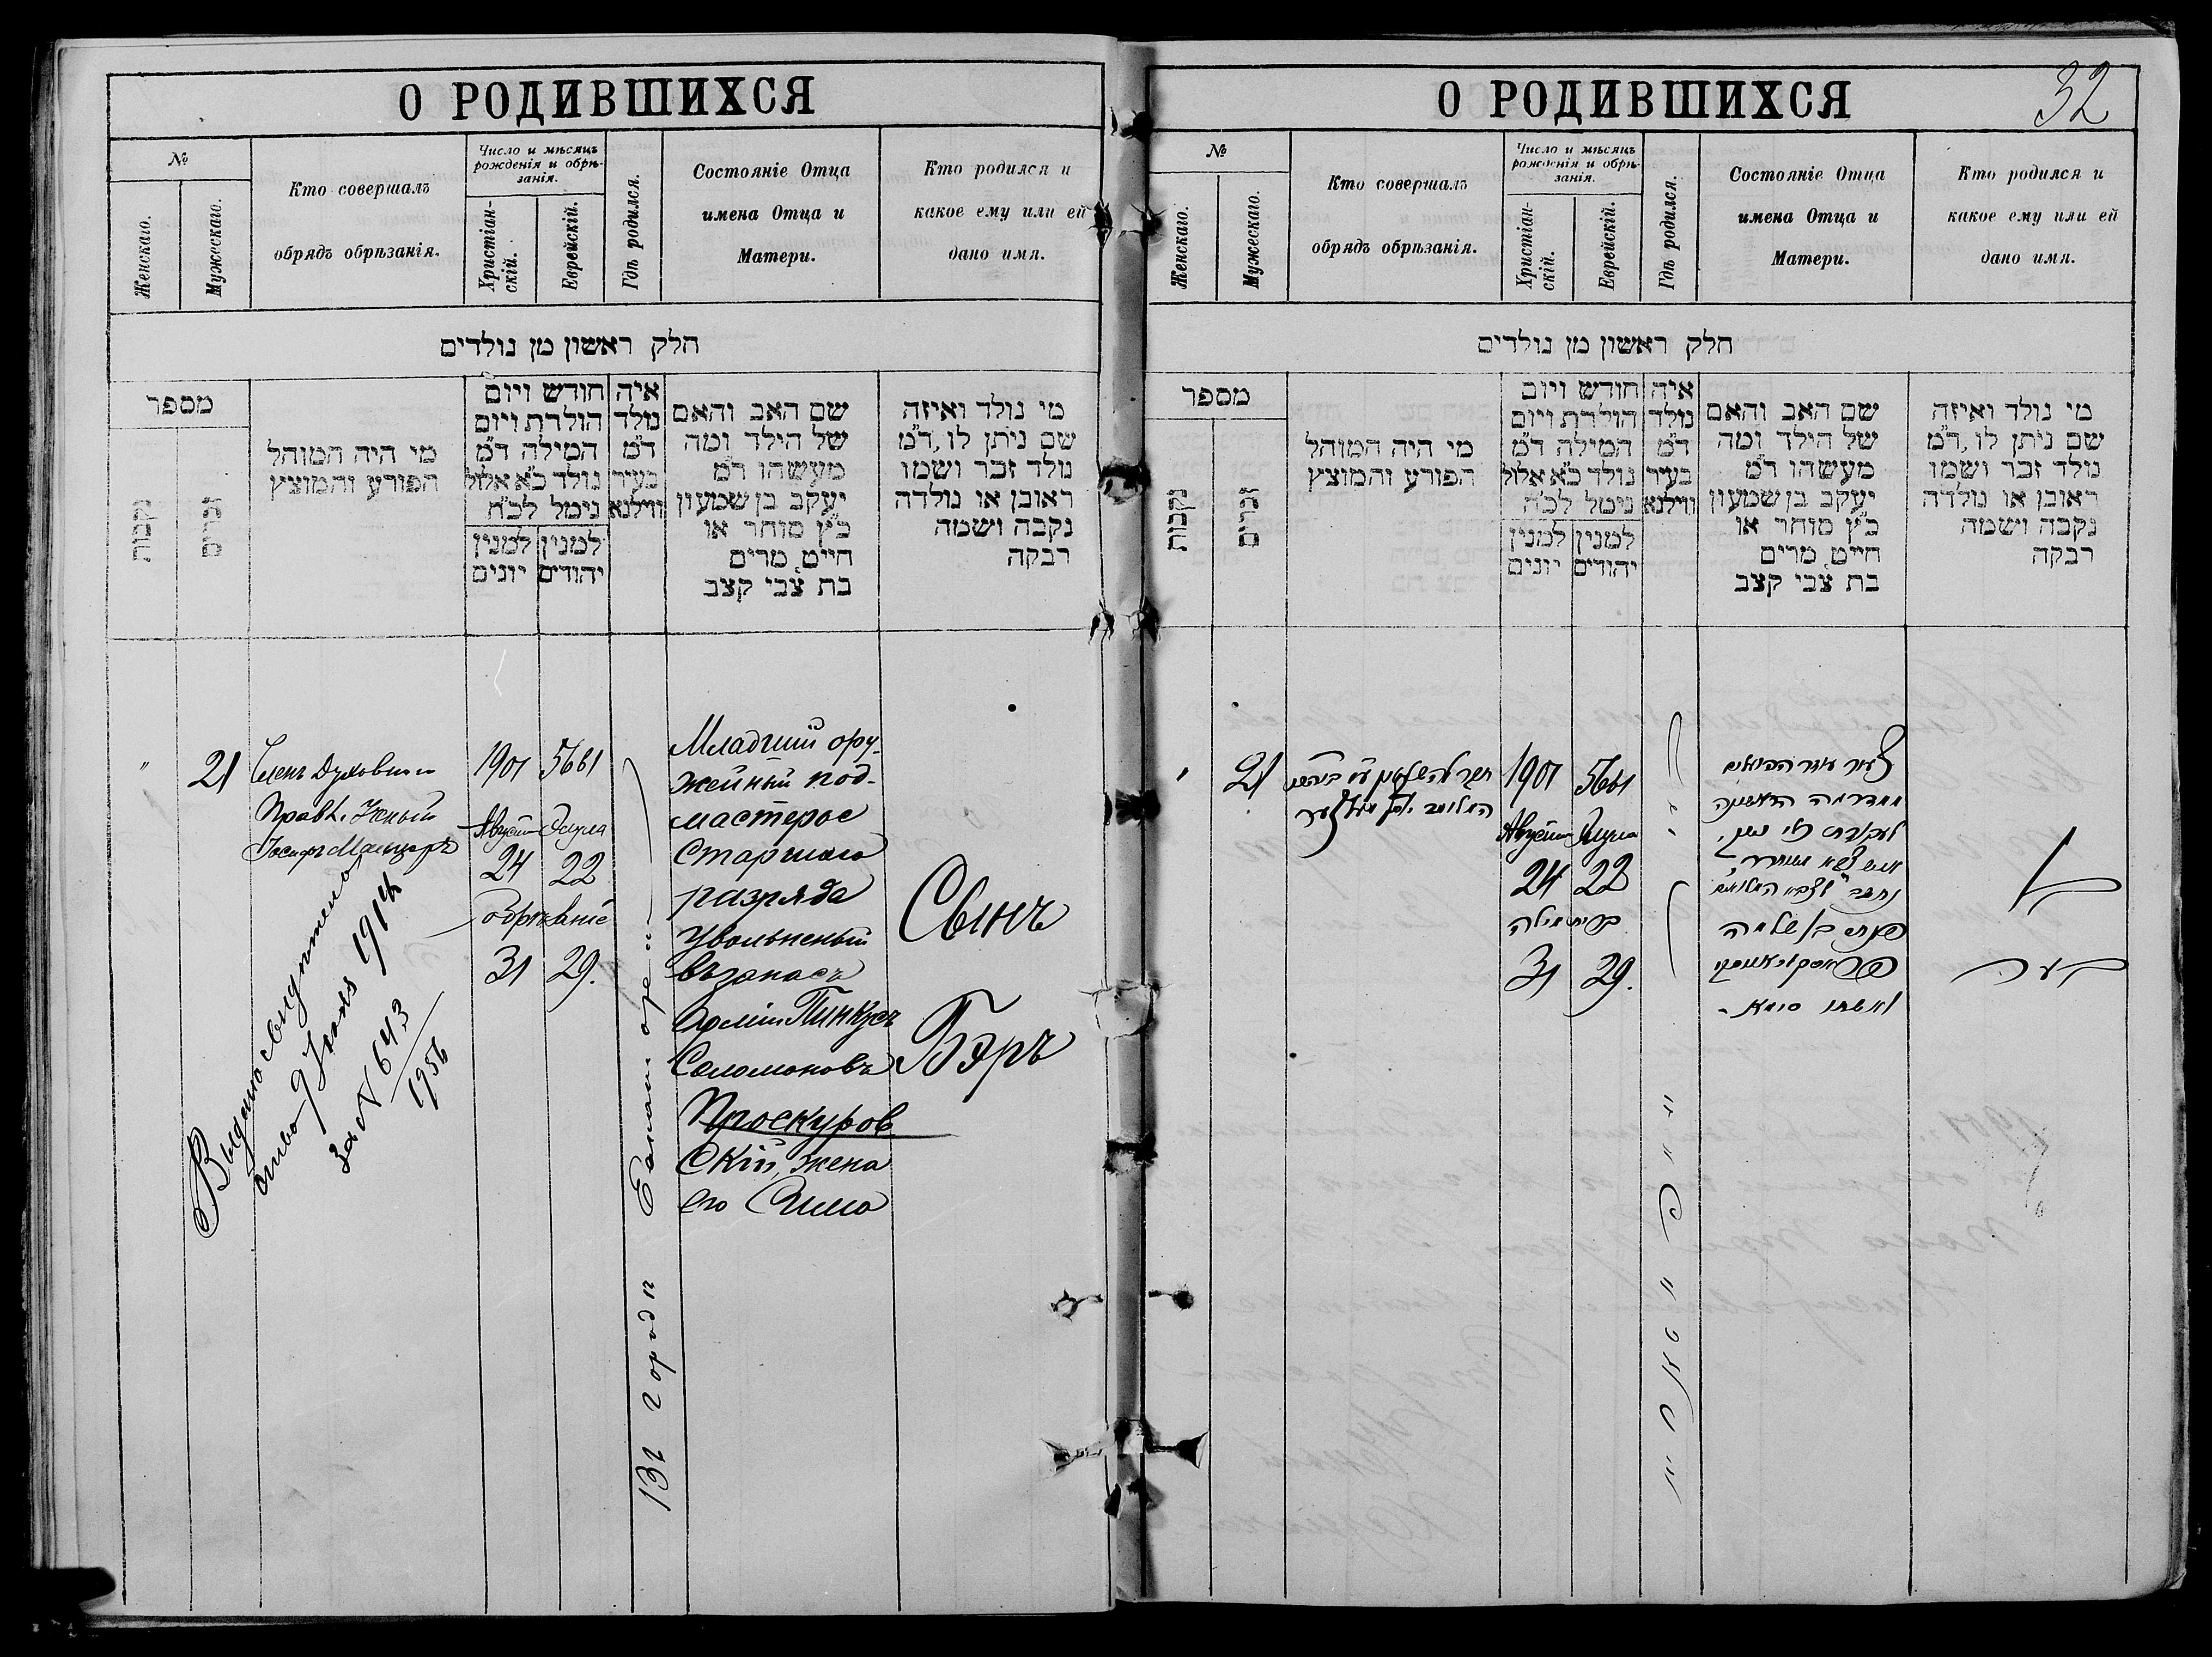 О РОДИВШИХСЯ
№
Женскаго.
Мужескаго.
Кто совершалъ
обрядъ обрѣзанія.
Число и мѣсяцъ
рожденія и обрѣ-
занія.
Христіан-
скій.
Еврейскій.
Гдѣ родился.
Состояніе Отца
имена Отца и
Матери.
Кто родился и
какое ему или ей
дано имя.
חלק ראשון מן נולדים
מספר
נקבות
זכרים
מי היה המוהל
הפורע והמוצץ
חודש ויום
הולדת ויום
המילה ד״מ
נולד כ״א אלול
נימל לכ״ח
למנין יונים
למנין יהודים
איה
נולד
ד״מ
בעיר
ווילנא
שם האב והאם
של הילד ומה
מעשהו ד״מ
יעקב בן שמעון
כ״ץ סוחר או
חייט, מרים
בת צבי קצב
מי נולד ואיזה
שם ניתן לו, ד״מ
נולד זכר ושמו
ראובן או נולדה
נקבה ושמה
רבקה
"
21
Членъ Духовнаго
Правл. Ученый
Іосифъ
1901 5661
Августа Элула
24 22
обрѣзаніе
31 29.
Въ городѣ
Младшій ору-
жейный под-
мастерье
Старшаго
разряда
уволенный
въ запасъ
Арміи Пинкусъ
Соломоновъ
Проскуров
скій, жена
его Сима
Сынъ
Бэръ
Выдано свидѣтель
ство 9 Іюля 1914
за № 643
1956
О РОДИВШИХСЯ
32
№
Женскаго.
Мужескаго.
Кто совершалъ
обрядъ обрѣзанія.
Число и мѣсяцъ
рожденія и обрѣ-
занія.
Христіан-
скій.
Еврейскій.
Гдѣ родился.
Состояніе Отца
имена Отца и
Матери.
Кто родился и
какое ему или ей
дано имя.
חלק ראשון מן נולדים
מספר
נקבות
זכרים
מי היה המוהל
הפורע והמוצץ
חודש ויום
הולדת ויום
המילה ד״מ
נולד כ״א אלול
נימל לכ״ח
למנין יונים
למנין יהודים
איה
נולד
ד״מ
בעיר
ווילנא
שם האב והאם
של הילד ומה
מעשהו ד״מ
יעקב בן שמעון
כ״ץ סוחר או
חייט, מרים
בת צבי קצב
מי נולד ואיזה
שם ניתן לו, ד״מ
נולד זכר ושמו
ראובן או נולדה
נקבה ושמה
רבקה
"
21
1901 5661
Августа Элула
24 22
ברית מילה
31 29.
פנחס בן שלמה
פראסקוראווסקי
ואשתו סימא
בן
בער